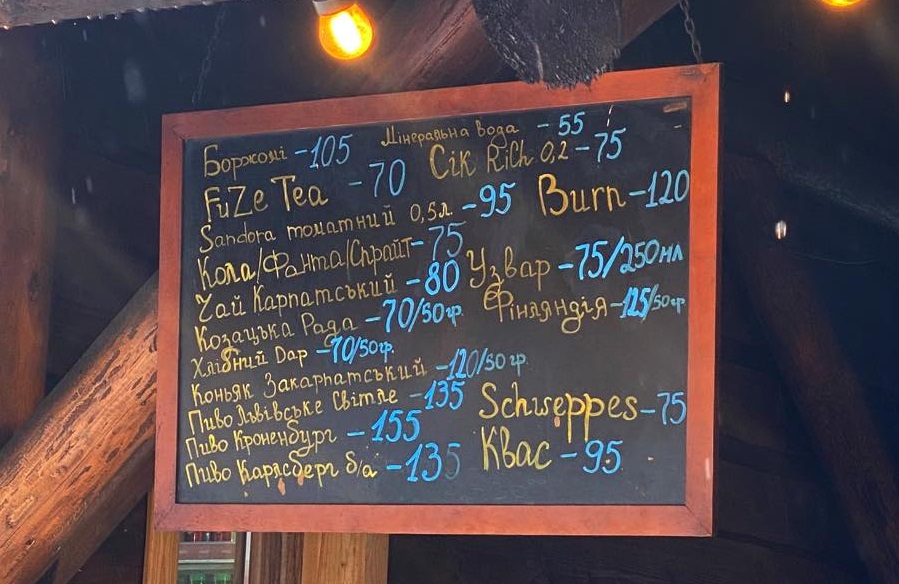 Боржомі -105 Мінеральна вода -55
FuZe Tea -70 Сік Rich 0,2 -75
Sandora томатний 0,5л -95 Burn -120
Кола/Фанта/Спрайт -75
Чай Карпатський -80 Узвар -75/250мл
Козацька Рада -70/50гр. Фінляндія -125/50гр.
Хлібний Дар -70/50гр.
Коньяк Закарпатський -120/50гр.
Пиво Львівське Світле -135 Schweppes -75
Пиво Кроненбург -155 Квас -95
Пиво Карлсберг б/а -135